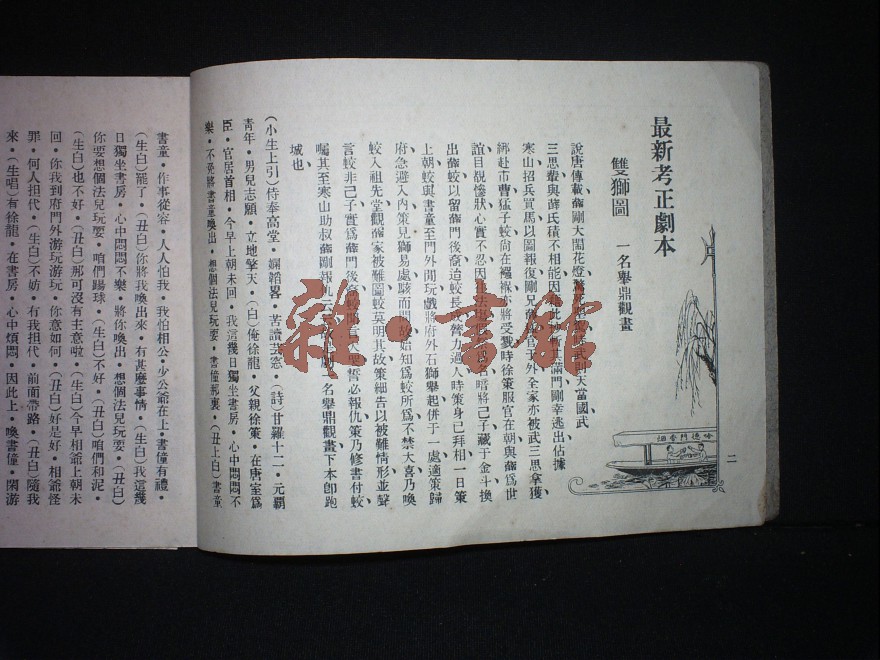 最新考正劇本
雙獅圖 一名舉鼎觀畫
說唐傳載薛剛大鬧花燈 武則天當國武
三思羣與薛氏積不相能因 滿門剛幸逃出佔據
寒山招兵買馬以圖報復剛兄 官于外全家亦被武三思拿獲
綁赴市曹猛子蛟尚在襁褓亦將受戮時徐策服官在朝與薛爲世
誼目覩慘狀心實不忍因 暗將己子藏于金斗換
出薛蛟以留薛門後裔迨蛟長成膂力過人時策身已拜相一日策
上朝蛟與書童至門外閒玩戲將府外石獅舉起併于一處適策歸
府急避入內策見獅易處駭而問故始知爲蛟所爲不禁大喜乃喚
蛟入祖先堂觀薛家被難圖蛟莫明其故策細告以被難情形並聲
言蛟非己子實爲薛門後裔蛟 大哭誓必報仇策乃修書付蛟
囑其至寒山助叔薛剛報仇云 名舉鼎觀畫下本卽跑
城也
(小生上引)侍奉高堂•嫻韜畧•苦讀芸窓•(詩)甘羅十二•元覇
青年•男兒志願•立地擎天•(白)俺徐龍•父親徐策•在唐室爲
臣•官居首相•今早上朝未回•我這幾日獨坐書房•心中悶悶不
樂•不免將書童喚出•想個法兒玩耍•書僮那裏•(丑上白)書童
書童•作事從容•人人怕我•我怕相公•少公爺在上•書僮有禮•
(生白)罷了•(丑白)你將我喚出來•有甚麼事情•(生白)我這幾
日獨坐書房•心中悶悶不樂•將你喚出•想個法兒玩耍•(丑白)
你要想個法兒玩耍•咱們踢球•(生白)不好•(丑白)咱們和泥•
(生白)也不好•(丑白)那可沒有主意啦•(生白)今早相爺上朝未
回•你我到府門外游玩游玩•你意如何•(丑白)好是好•相爺怪
罪•何人担代•(生白)不妨•有我担代•前面帶路•(丑白)隨我
來•(生唱)有徐龍•在書房•心中煩悶•因此上•喚書僮•閑游
二
哈德門香烟
雜·書館